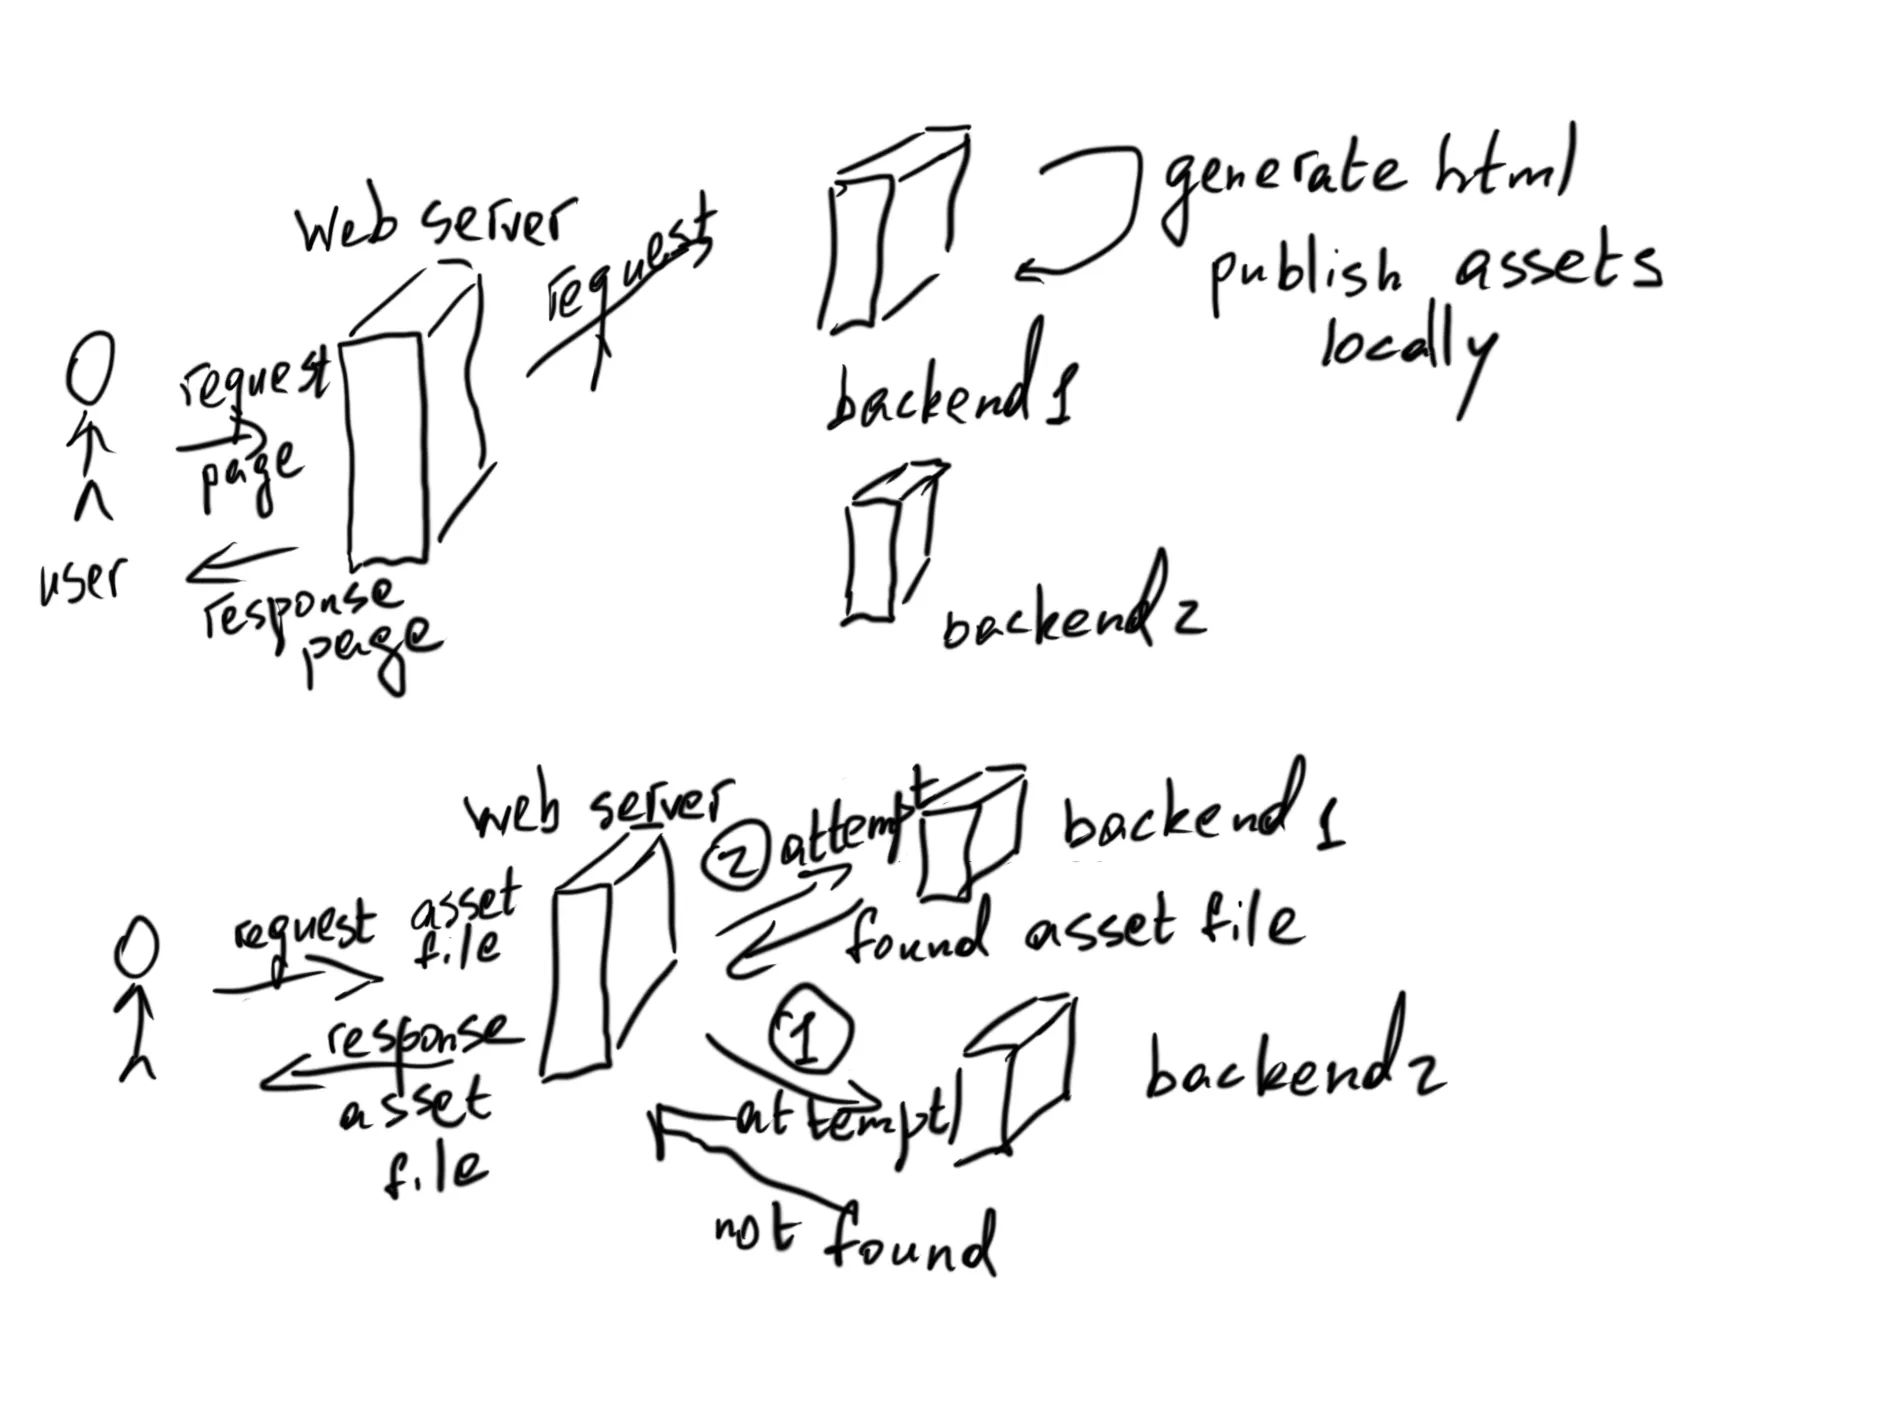 web server
request
generate html
publish assets
locally
request
page
backend 1
user
response
page
backend 2
web server
2 attempt
backend 1
request asset
file
found asset file
response
asset
file
1
attempt
backend 2
not found